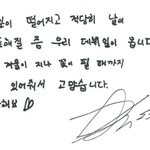 잎이 떨어지고 적당히 날이
질 즘 우리 데뷔일이 옵니다.
겨울이 지나 꽃이 필 때까지
있어줘서 고맙습니다.